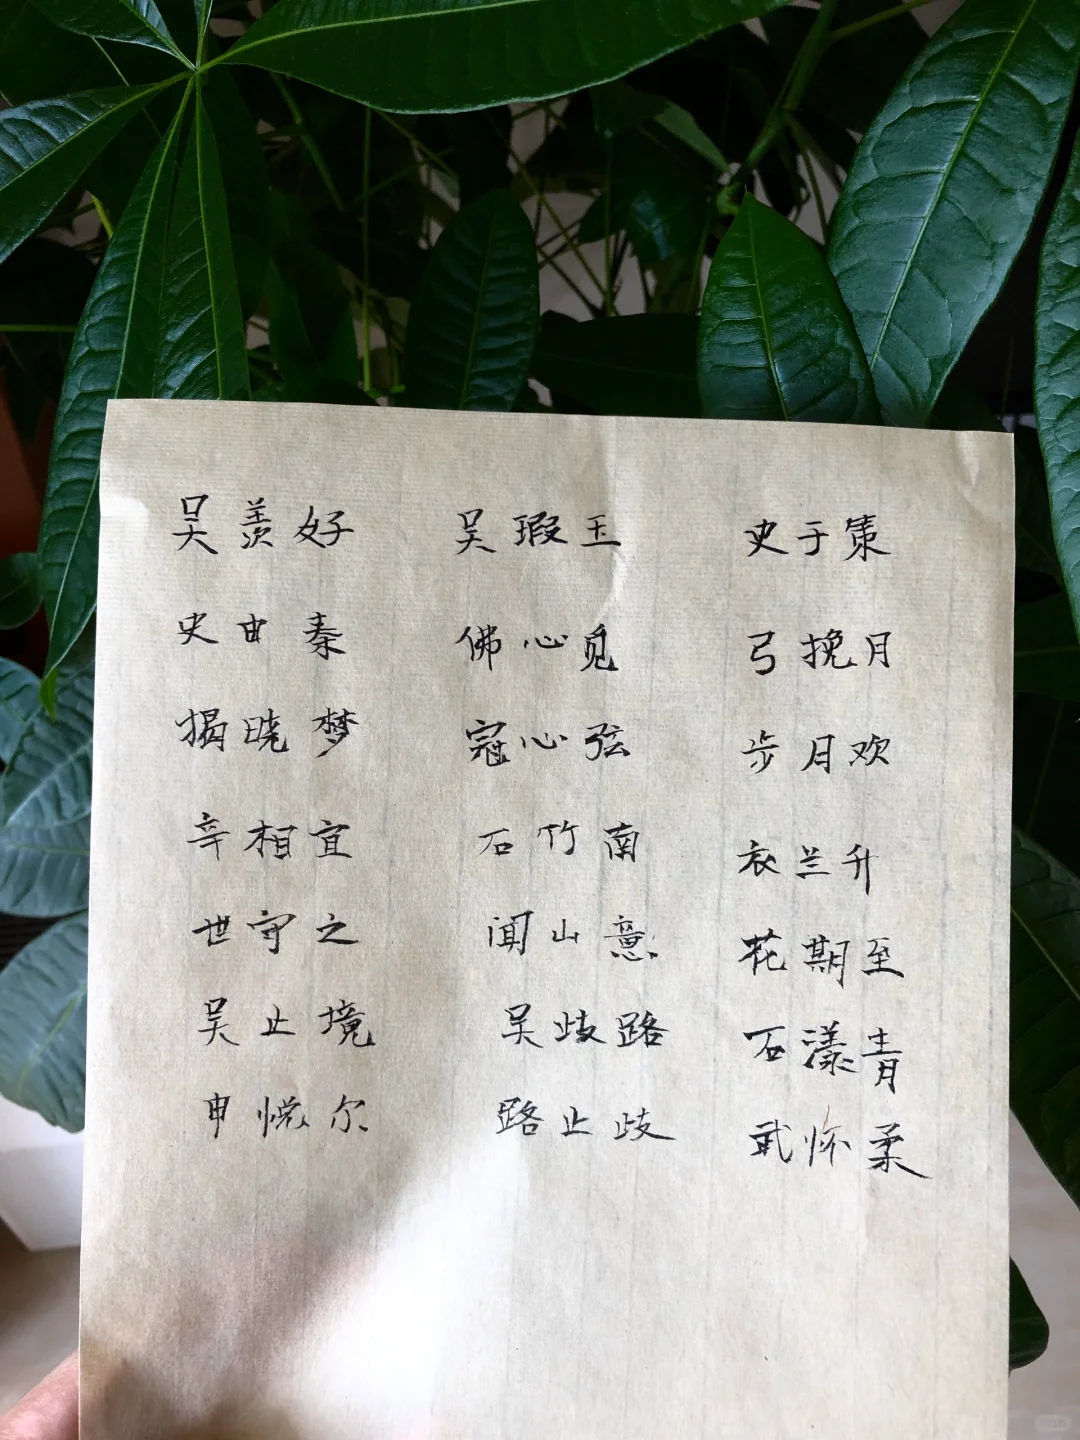 吴羡好
史由秦
揭晓梦
辛相宜
世守之
吴止境
申悦尔
吴瑕玉
佛心觅
冠心弦
石竹南
闻山意
吴歧路
路止歧
史于策
弓挽月
步月欢
衣兰升
花期至
石漾青
武怀柔